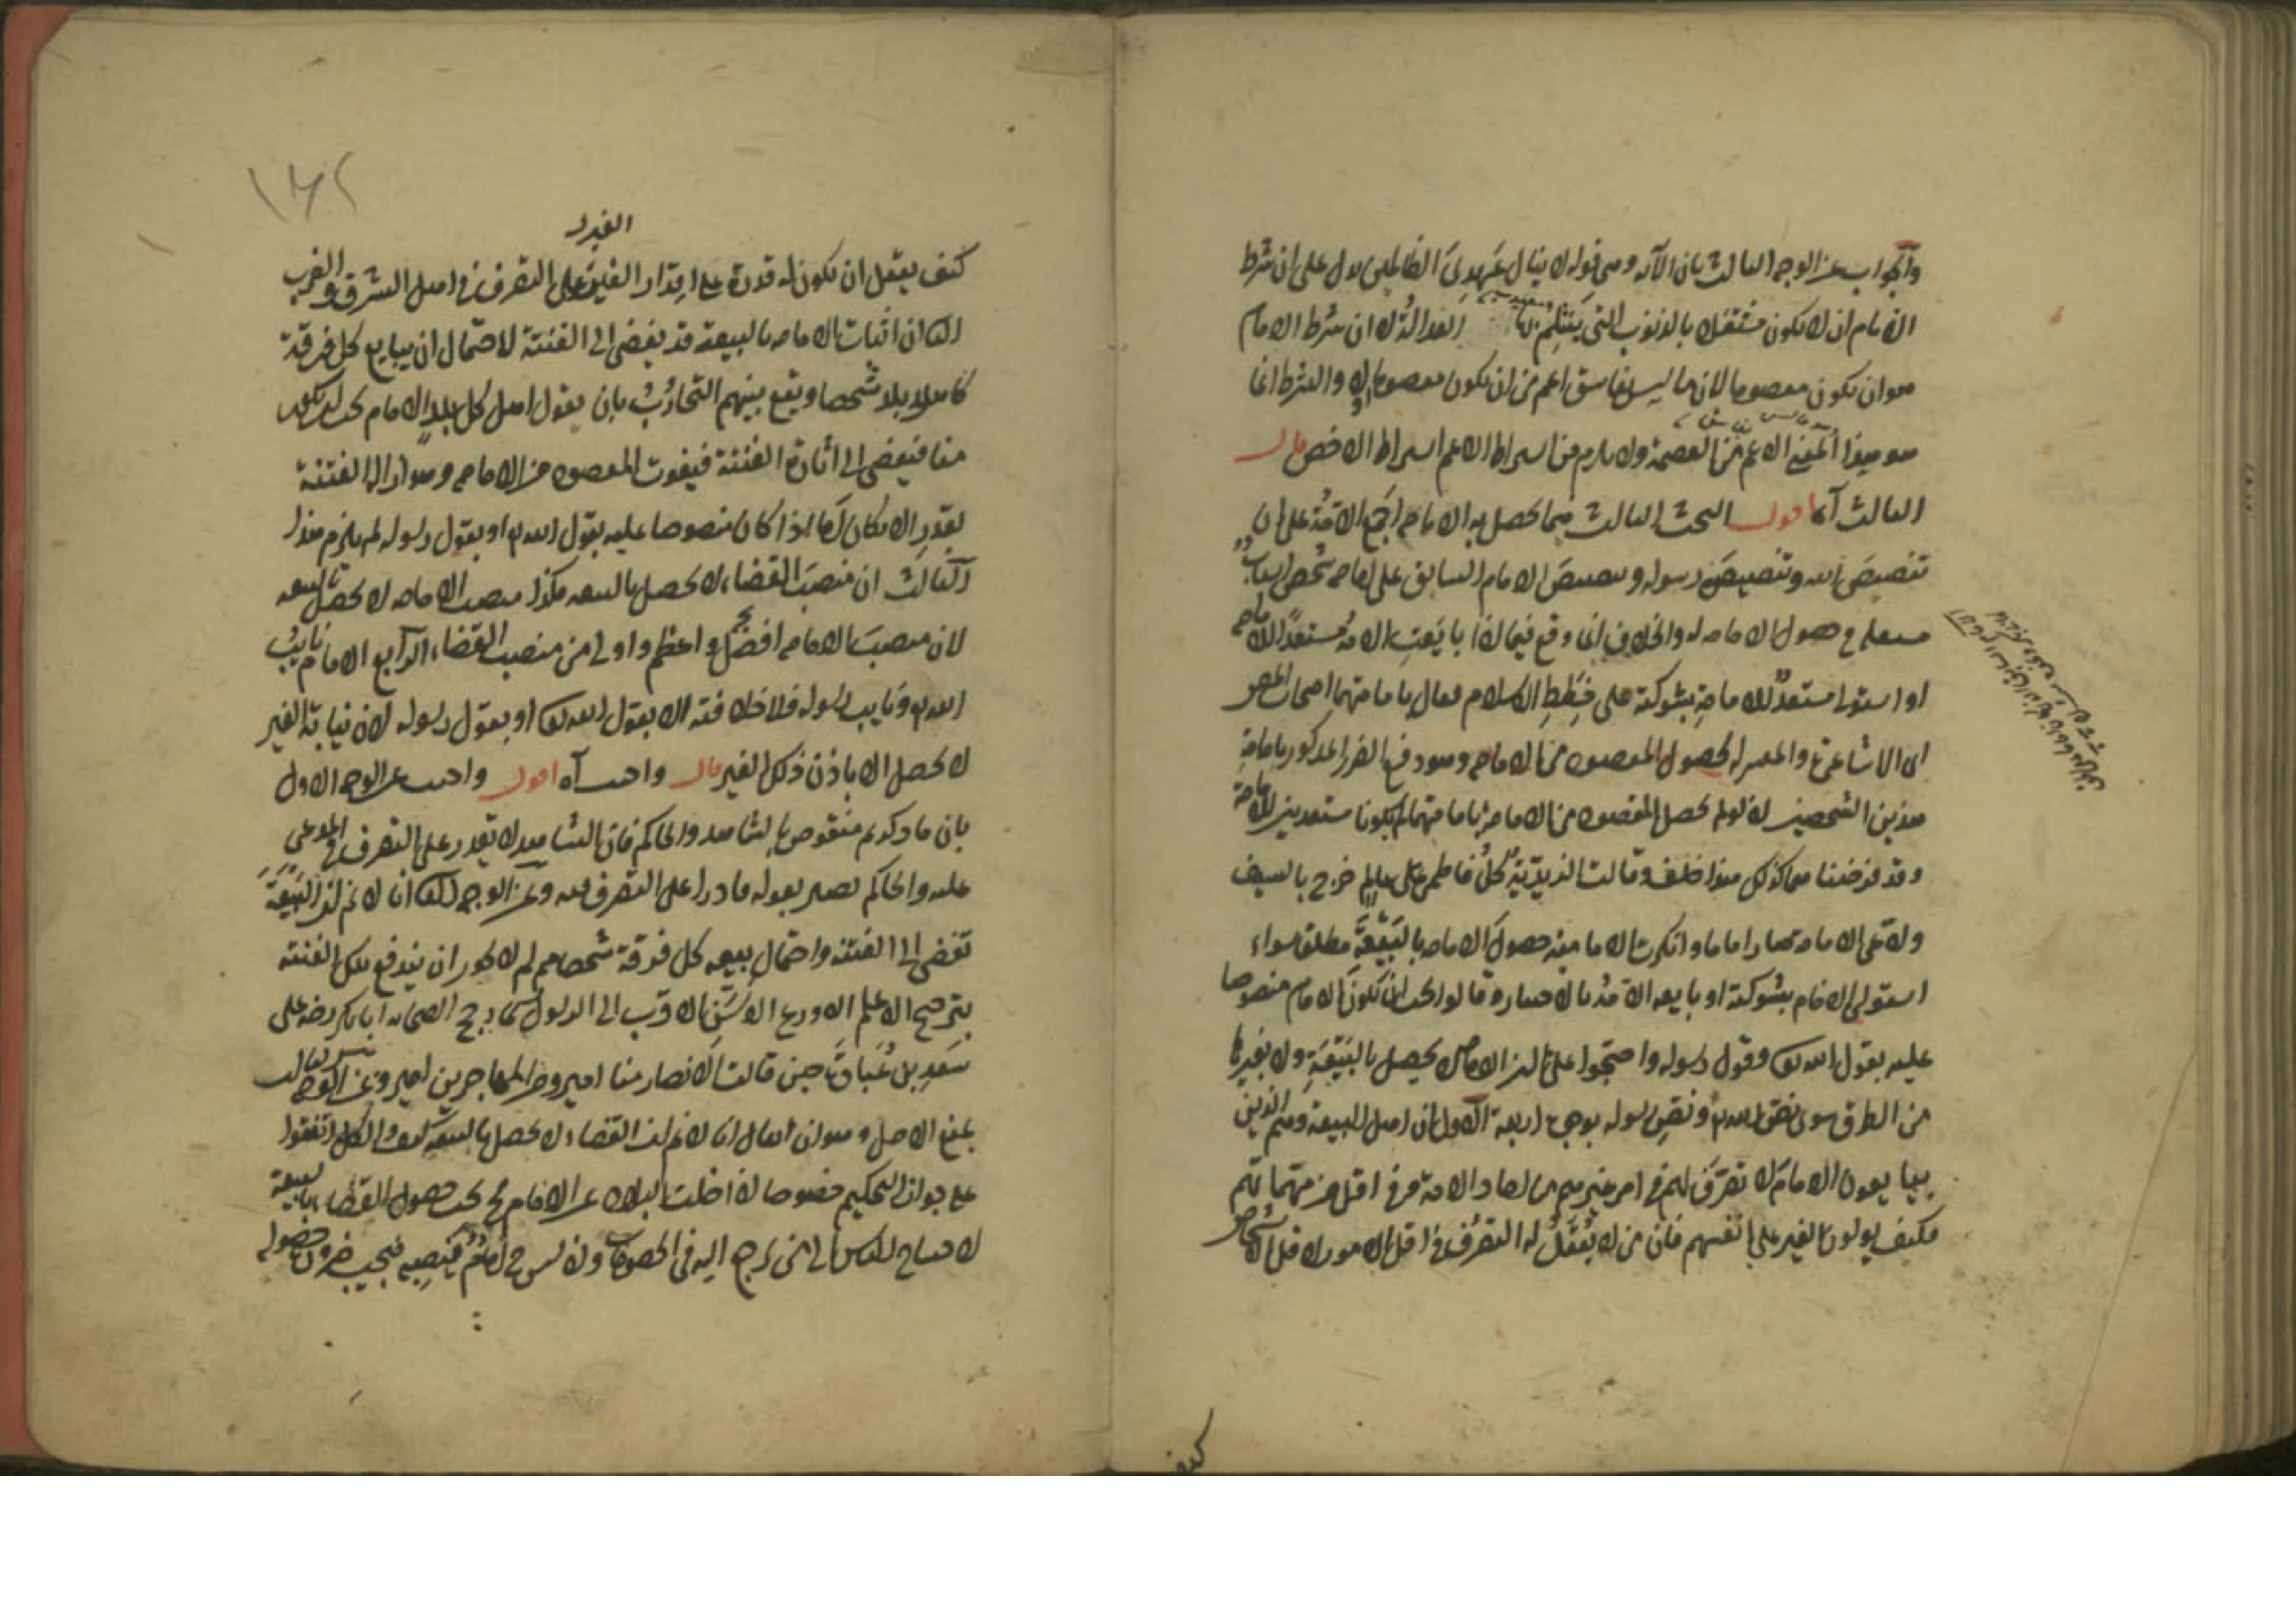 والجواب عن الوجه الثالث بان الآية وهي قوله لا ينال عهدي الظالمين يدل على ان شرط
الامام ان لا يكون مشتغلا بالذنوب التي ينثلم بها لا ان شرط الامام
هو ان يكون معصوما لان ما ليس بفاسق اعم من ان يكون معصوما او لا والشرط انما
هو هذا المعنى الاعم من العصمة ولا يلزم من اشتراط الاعم اشتراط الاخص قال
الثالث آه اقول البحث الثالث فيما يحصل به الامامة اجمع الامة على ان
تنصيص الله وتنصيص رسوله وتنصيص الامام السابق على امامة شخص اسباب
مستقلة في حصول الامامة له والخلاف انما وقع فيما اذا بايعت الامة مستعدا للامامة
او استولى مستعد للامامة بشوكته على خطط الاسلام فقال بامامتهما اصحابنا
اى الاشاعرة والمعتزلة لحصول المقصود من الامامة وهو دفع الضرر المذكور بامامة
هذين الشخصين اذ لو لم يحصل المقصود من الامامة بامامتهما لم يكونا مستعدين للامامة
وقد فرضنا هما كذلك هذا خلف وقالت الزيدية كل فاطمي عالم خرج بالسيف
وادعى الامامة صار اماما وانكرت الامامية حصول الامامة بالبيعة مطلقا سواء
استولى الامام بشوكته او بايعه الامة بالاختيار وقالوا يجب ان يكون الامام منصوصا
عليه بقول الله تعالى وقول رسوله واحتجوا على ان الامامة لا يحصل بالبيعة ولا بغيرها
من الطرق سوى نص الله ونص رسوله بوجوه اربعة الاول ان اهل البيعة وهم الذين
يبايعون الامام لا تصرف لهم في امر غيرهم من احاد الامة وفي اقل من مهماتهم
فكيف يولون الغير على انفسهم فان من لا يعقل له التصرف في اقل الامور لاقل الاشخاص
كيف
الغير لـ
كيف يعقل ان يكون له قدرة على اقدار الغير على التصرف في اهل الشرق والغرب
الثانى ان اثبات الامامة بالبيعة قد يفضى الى الفتنة لاحتمال ان يبايع كل فرقة
شخصا ويقع بينهم التحارب بان يقول اهل كل بلد الامام يجب ان يكون
منا فيفضى الى اثارة الفتنة فيفوت المقصود من الامامة وهو ازالة الفتنة
بقدر الامكان اما اذا كان منصوصا عليه بقول الله او بقول رسوله لم يلزم هذا
الثالث ان منصب القضاء لا يحصل بالبيعة فكذا منصب الامامة لا يحصل بالبيعة
لان منصب الامامة افضل واعظم واولى من منصب القضاء الرابع الامام نايب
الله ونايب رسوله فلا خلافته الا بقول الله تعالى او بقول رسوله لان نيابة الغير
لا يحصل الا باذن ذلك الغير قال واجيب آه اقول واجيب عن الوجه الاول
بان ما ذكرتم منقوض بالشاهد والحاكم فان الشاهد لا يقدر على التصرف في المدعى
عليه والحاكم يصير بقوله قادرا على التصرف فيه وعن الوجه الثانى انا لا نم ان البيعة
تفضى الى الفتنة واحتمال بيعة كل فرقة شخصا منهم لم لا يجوز ان يندفع تلك الفتنة
بترجيح الاعلم الاورع الاسن الاقرب الى الرسول كما رجح الصحابة ابا بكر رضه على
سعد بن عبادة حين قالت الانصار منا امير ومن المهاجرين امير وعن الوجه الثالث
بمنع الاصل وهو ان يقال انا لا نم ان القضاء لا يحصل بالبيعة كيف والكل اتفقوا
على جواز التحكيم خصوصا اذا خلت البلاد عن الامام يجب حصول القضاء بالبيعة
لاحتياج الناس الى من يرجع اليه في الخصومات